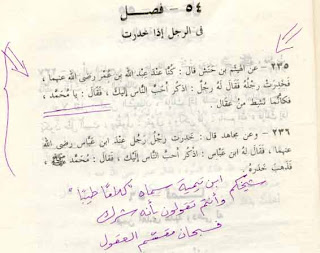 ٥٤ - فصل
في الرجل إذا خدرت
٢٣٥ - عن الهيثم بن حنش قال : كنّا عند عبد الله بن عُمَر رضي الله عنهما ،
فخدرت رِجْلُه فقال له رجُل : اذكر أحبَّ الناس إليك ، فقال : يا مُحَمَّد ،
فكأنّما نَشِطَ من عقال .
٢٣٦ - وعن مجاهد قال : خدرت رجلُ رجُلٍ عِنْد ابن عبّاس رضي الله
عنهما ، فقال له ابن عباس : اذكر أحب الناس إليك ، فقال : مُحَمَّد ﷺ ،
فذهَبَ خَدَرُه .
شيخكم ابن تيمية سماه "كلامًا طيبًا"
وأنتم تقولون بأنه شرك
فسبحان مقسّم العقول